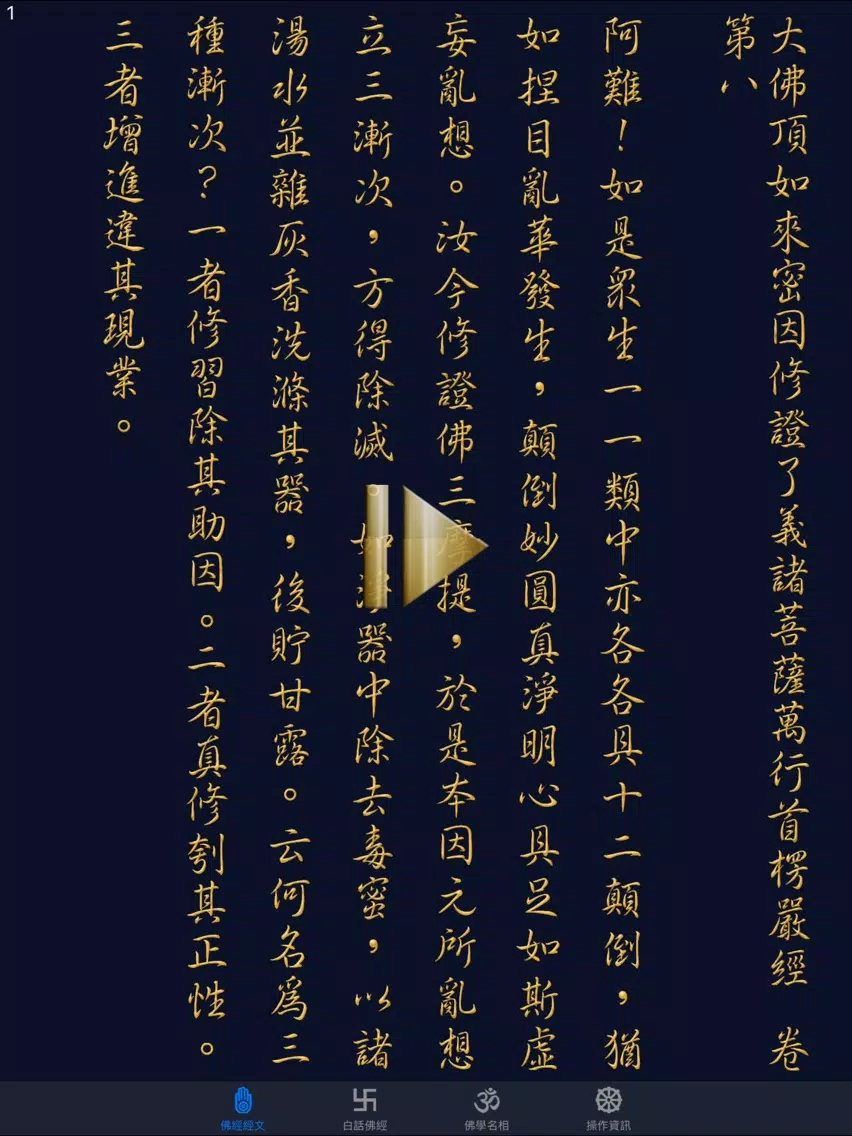 1
大佛頂如來密因修證了義諸菩薩萬行首楞嚴經　卷
第八
阿難！如是眾生一一類中亦各各具十二顛倒，猶
如捏目亂華發生，顛倒妙圓真淨明心具足如斯虛
妄亂想。汝今修證佛三摩提，於是本因元所亂想
立三漸次，方得除滅。如淨器中除去毒蜜，以諸
湯水並雜灰香洗滌其器，後貯甘露。云何名為三
種漸次？一者修習除其助因。二者真修刳其正性。
三者增進違其現業。
佛經經文
白話佛經
佛學名相
操作資訊